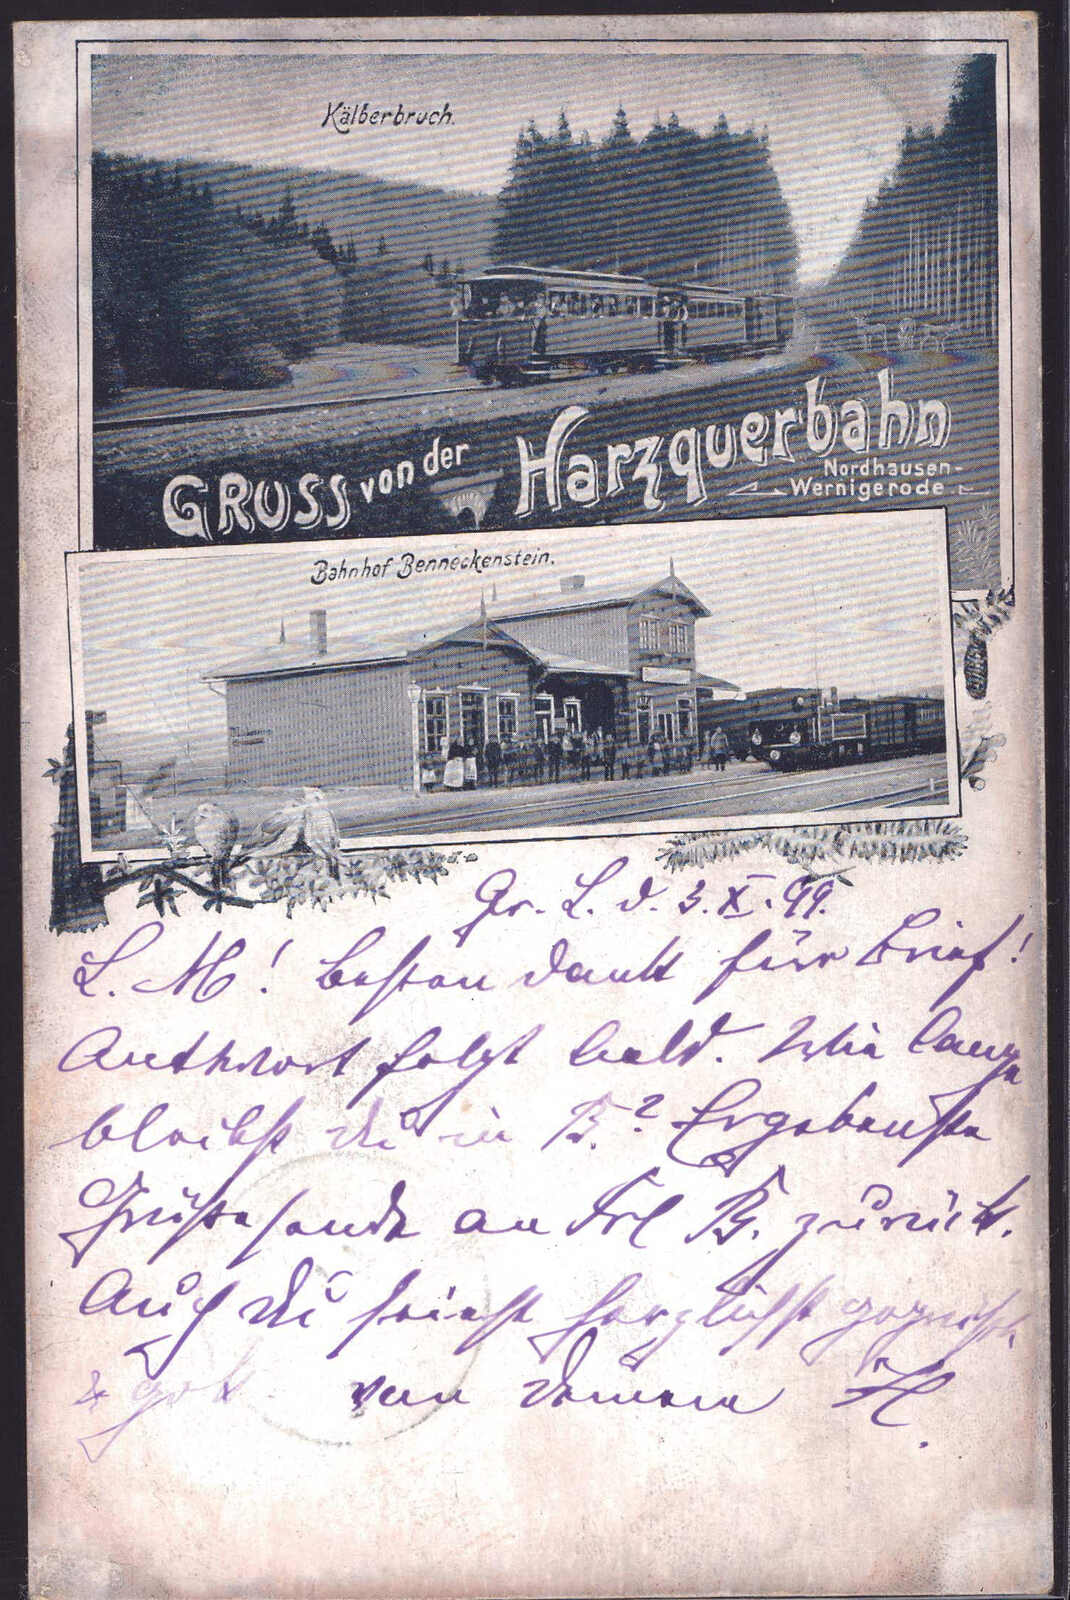 Kälberbruch.
GRUSS von der Harzquerbahn
Nordhausen-
Wernigerode
Bahnhof Benneckenstein.
Gr. L. d. 3. X. 99.
L. M! besten Dank für Brief!
Anthwort folgt bald. Wie lange
bleibst du in B.? Ergebenste
Grüße sende an Frl B. zurück.
Auch du seiest herzlichst gegrüßt
& gek von Deinem H.